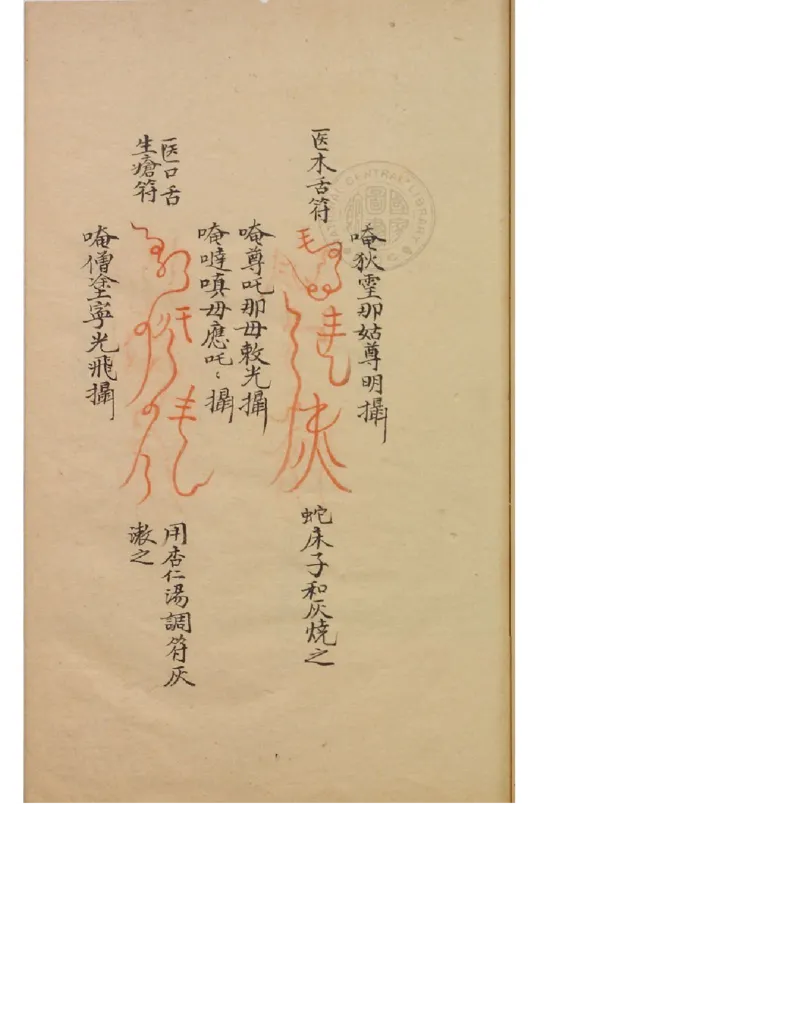 医木舌符
唵狄霊那姑尊明攝
唵尊吒那毋敕光攝
蛇床子和灰燒之
医口舌
生瘡符
唵噠嗔毋應吒〻攝
唵僧塗寧光飛攝
用杏仁湯調符灰
漱之
CENTRAL LIBRARY